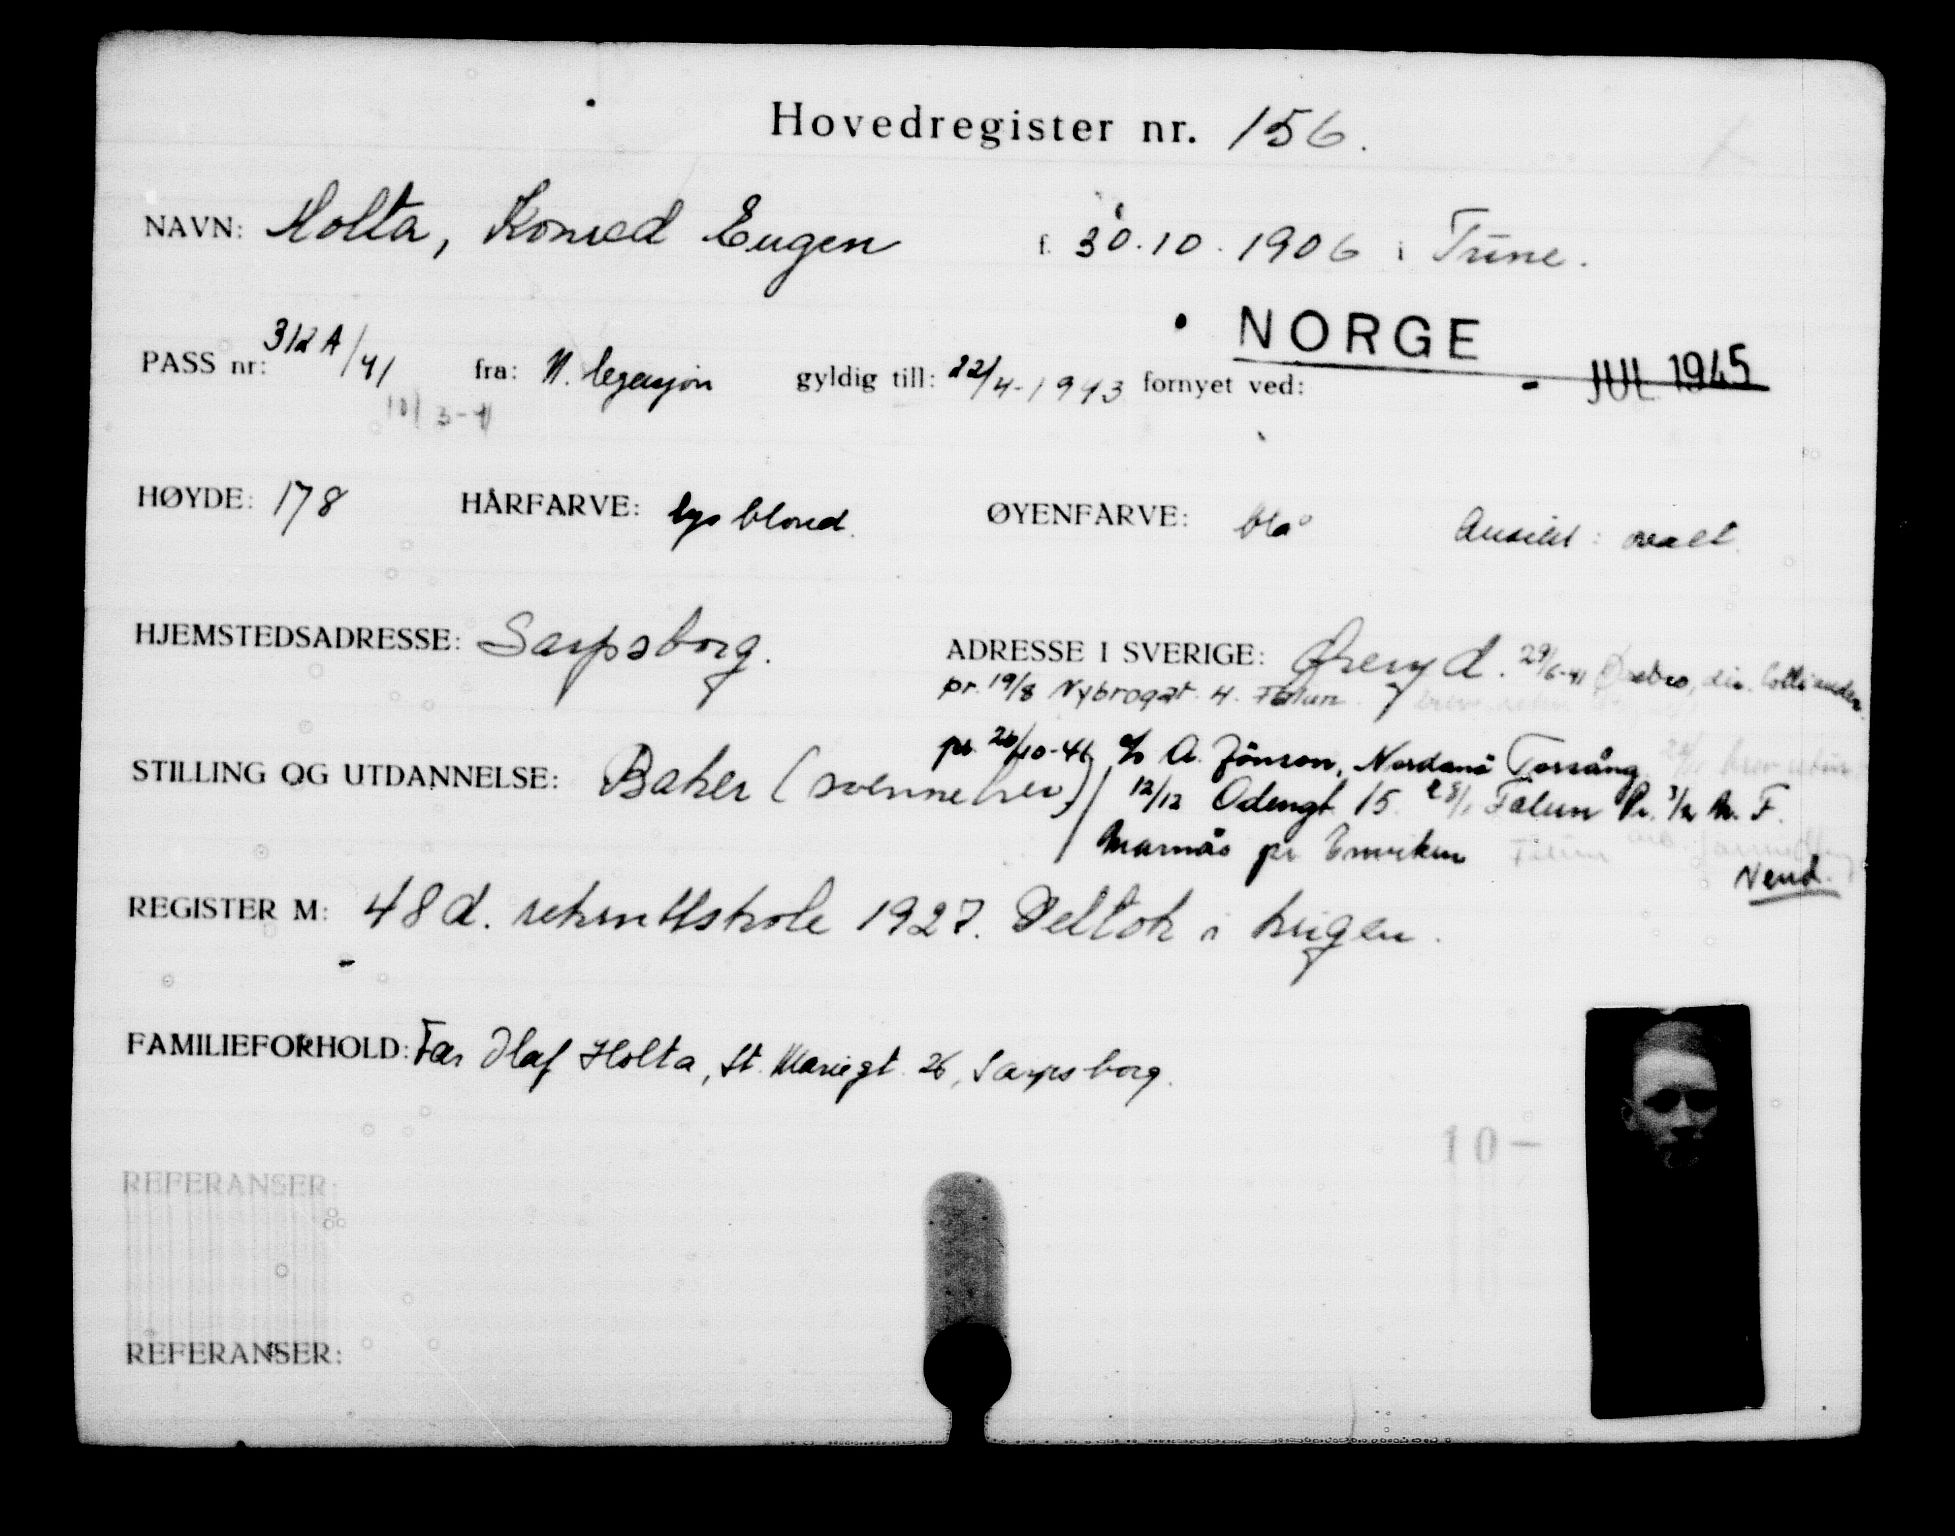 Hovedregister nr. 156.
NAVN: Holta, Konrad Eugen f. 30.10.1906 i Tune.
NORGE
- JUL 1945
PASS nr: 312A/41 fra: N. legasjon gyldig till: 22/4-1943 fornyet ved:
10/3-41
HØYDE: 178 HÅRFARVE: lys blond. ØYENFARVE: blå Ansikt: ovalt.
HJEMSTEDSADRESSE: Sarpsborg. ADRESSE I SVERIGE: Øreryd. 29/6-41 Örebro,
pr. 19/8 Nybrogat. 4. Falun.
pr. 26/10-41 c/o A. Jönson, Nordanö Torsång
STILLING OG UTDANNELSE: Baker (svennebrev) 12/12 Odengt 15. 28/1 Falun Pr. 3/2 M. F.
Marnäs pr Enviken Falun
Vend.
REGISTER M: 48 d. rekruttskole 1927. Deltok i krigen.
FAMILIEFORHOLD: Far Olaf Holta, St. Mariegt. 26, Sarpsborg.
10-
REFERANSER:
REFERANSER: